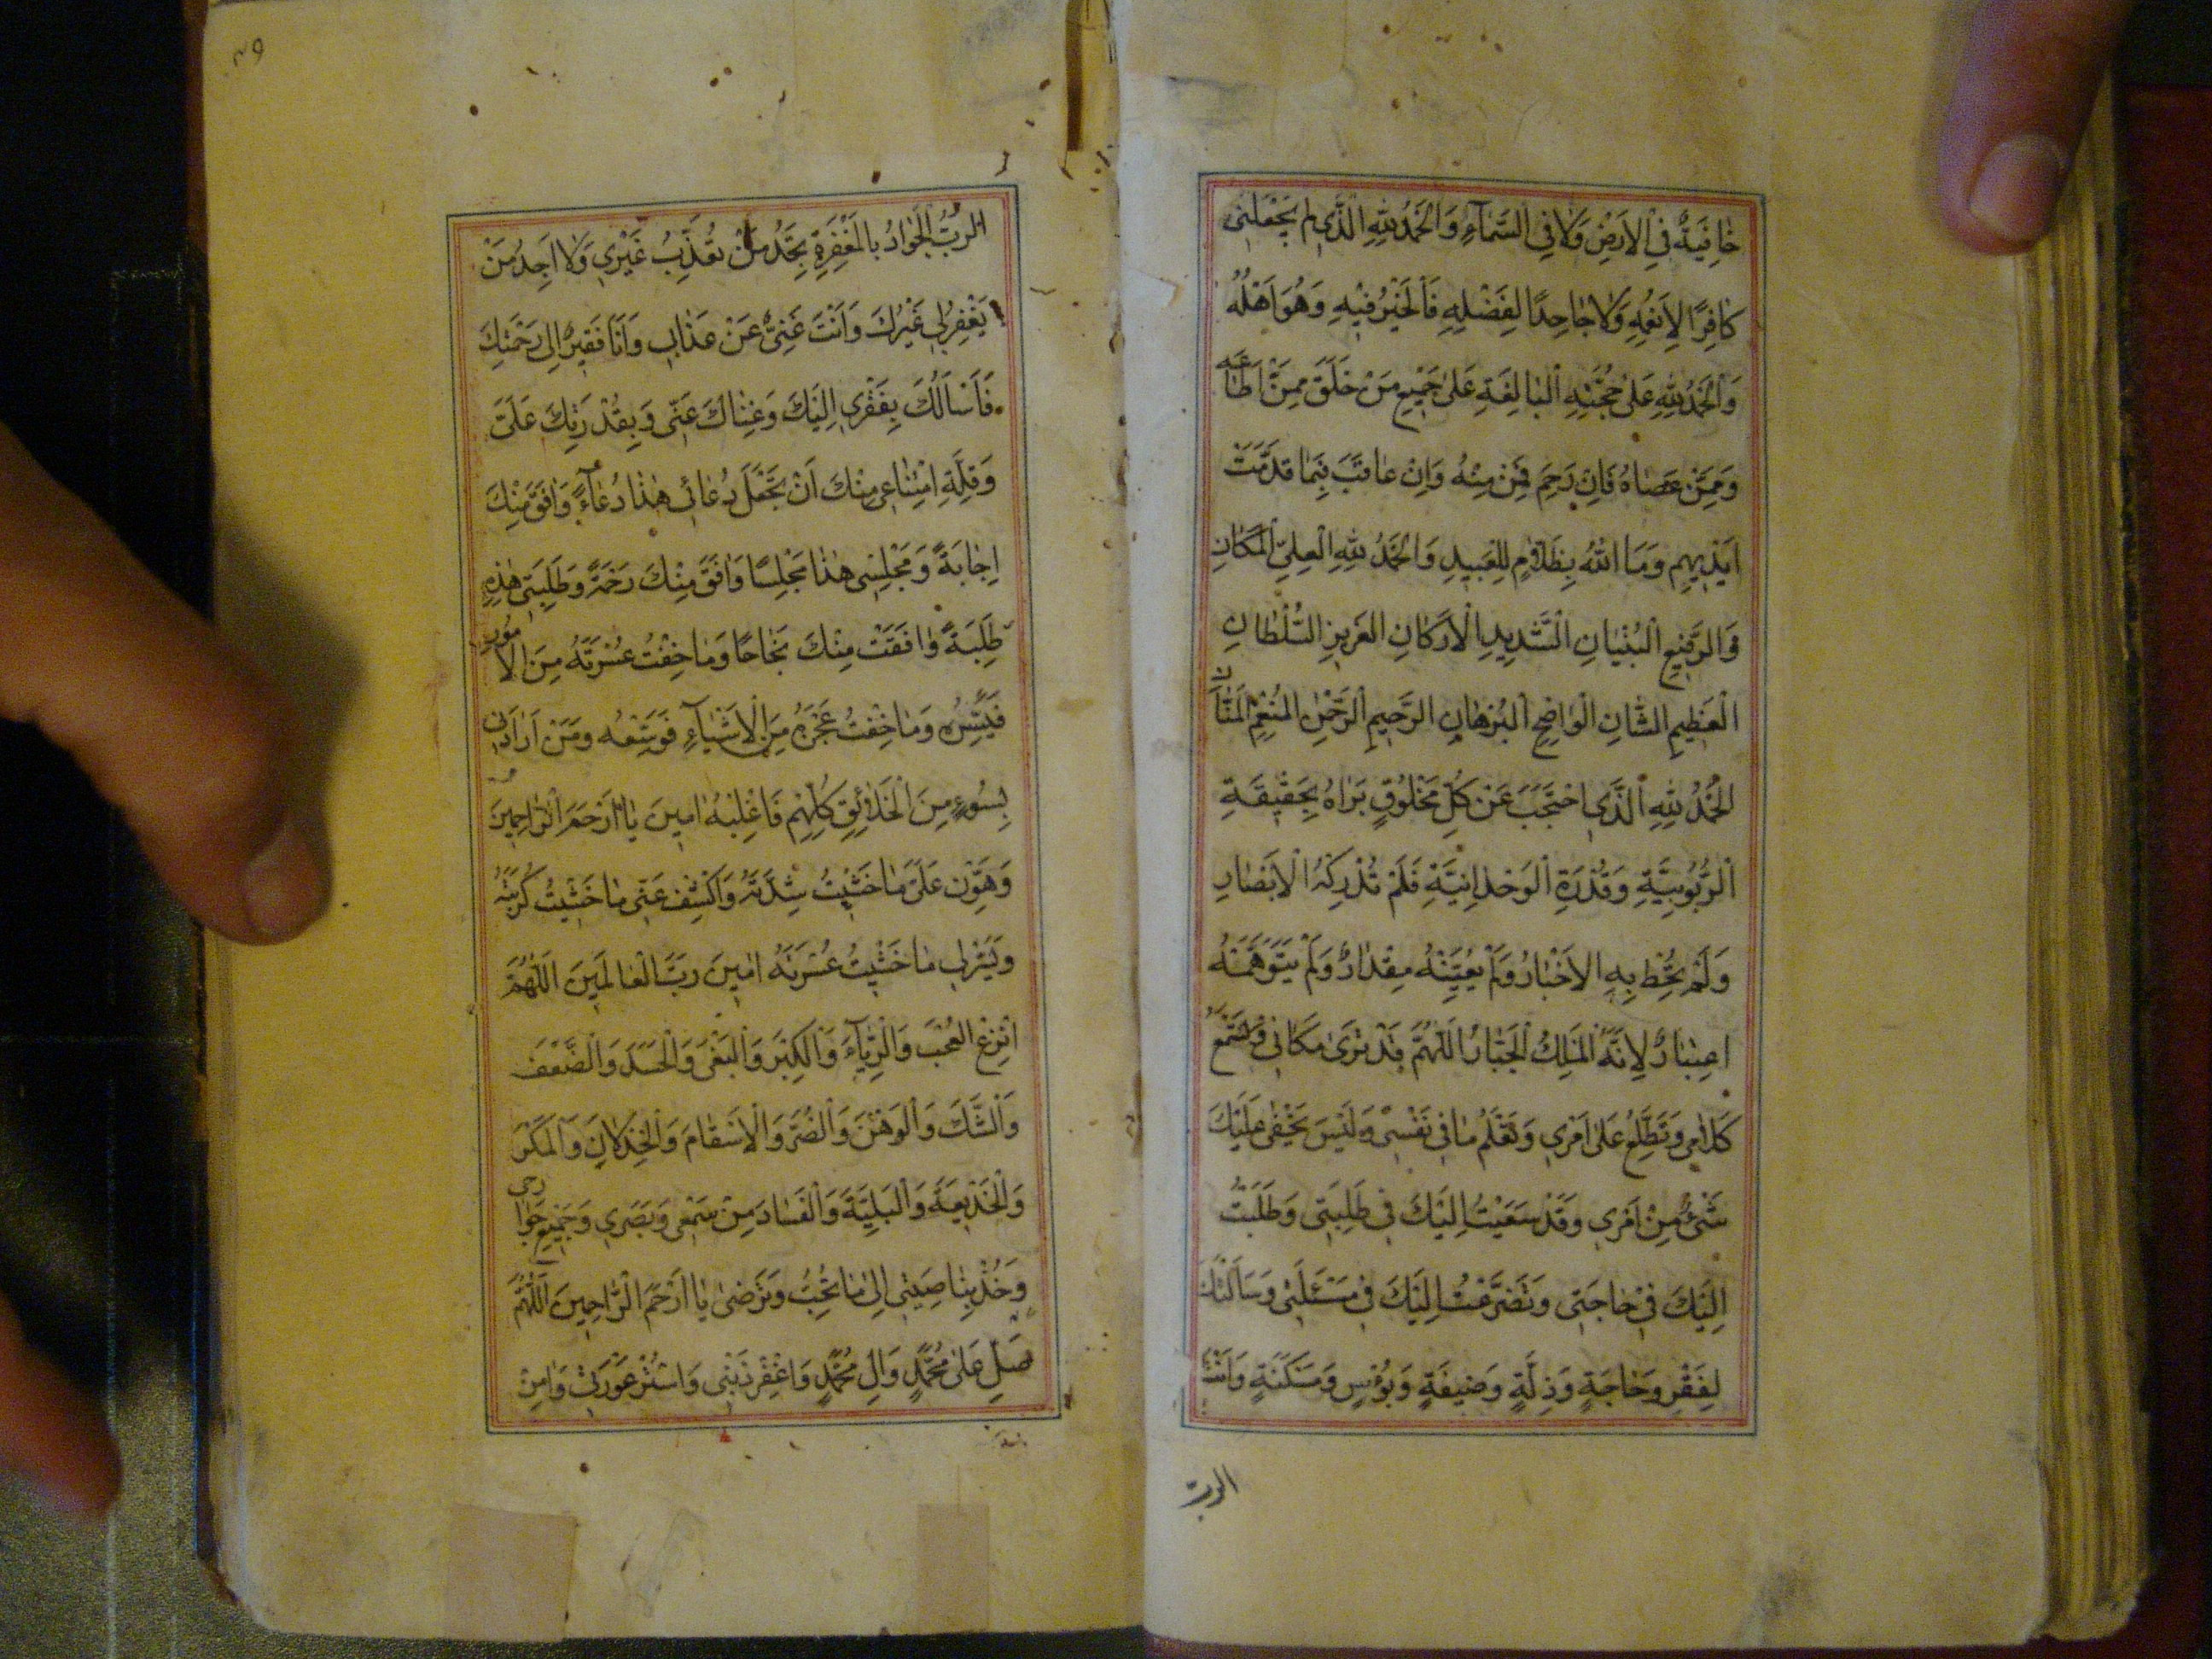 خَافِيَةٌ فِي الْاَرْضِ وَلَا فِي السَّمَآءِ وَالْحَمْدُ لِلّٰهِ الَّذِي لَمْ يَجْعَلْنِي
كَافِرًا لِاَنْعُمِهِ وَلَا جَاحِدًا لِفَضْلِهِ فَالْخَيْرُ فِيهِ وَهُوَ اَهْلُهُ
وَالْحَمْدُ لِلّٰهِ عَلَى حُجَّتِهِ الْبَالِغَةِ عَلَى جَمِيعِ مَنْ خَلَقَ مِمَّنْ اَطَاعَهُ
وَمِمَّنْ عَصَاهُ فَاِنْ رَحِمَ فَمِنْ مَنِّهِ وَاِنْ عَاقَبَ فَبِمَا قَدَّمَتْ
اَيْدِيهِمْ وَمَا اللّٰهُ بِظَلَّامٍ لِلْعَبِيدِ وَالْحَمْدُ لِلّٰهِ الْعَلِيِّ الْمَكَانِ
وَالرَّفِيعِ الْبُنْيَانِ الشَّدِيدِ الْاَرْكَانِ الْعَزِيزِ السُّلْطَانِ
الْعَظِيمِ الشَّانِ الْوَاضِحِ الْبُرْهَانِ الرَّحِيمِ الرَّحْمٰنِ الْمُنْعِمِ الْمَنَّانِ
الْحَمْدُ لِلّٰهِ الَّذِي احْتَجَبَ عَنْ كُلِّ مَخْلُوقٍ يَرَاهُ بِحَقِيقَةِ
الرُّبُوبِيَّةِ وَقُدْرَةِ الْوَحْدَانِيَّةِ فَلَمْ تُدْرِكْهُ الْاَبْصَارُ
وَلَمْ تُحِطْ بِهِ الْاَخْبَارُ وَلَمْ يُعَيِّنْهُ مِقْدَارٌ وَلَمْ يَتَوَهَّمْهُ
اعْتِبَارٌ لِاَنَّهُ الْمَلِكُ الْجَبَّارُ اَللّٰهُمَّ قَدْ تَرَى مَكَانِي وَتَسْمَعُ
كَلَامِي وَتَطَّلِعُ عَلَى اَمْرِي وَتَعْلَمُ مَا فِي نَفْسِي وَلَيْسَ يَخْفَى عَلَيْكَ
شَيْءٌ مِنْ اَمْرِي وَقَدْ سَعَيْتُ اِلَيْكَ فِي طَلِبَتِي وَطَلَبْتُ
اِلَيْكَ فِي حَاجَتِي وَتَضَرَّعْتُ اِلَيْكَ فِي مَسْئَلَتِي وَسَاَلْتُكَ
لِفَقْرٍ وَحَاجَةٍ وَذِلَّةٍ وَضِيقَةٍ وَبُؤْسٍ وَمَسْكَنَةٍ وَاَنْتَ
الرب
الرَّبُّ الْجَوَادُ بِالْمَغْفِرَةِ تَجِدُ مَنْ تُعَذِّبُ غَيْرِي وَلَا اَجِدُ مَنْ
يَغْفِرُ لِي غَيْرُكَ وَاَنْتَ غَنِيٌّ عَنْ عَذَابِي وَاَنَا فَقِيرٌ اِلَى رَحْمَتِكَ
فَاَسْاَلُكَ بِفَقْرِي اِلَيْكَ وَغِنَاكَ عَنِّي وَبِقُدْرَتِكَ عَلَيَّ
وَقِلَّةِ امْتِنَاعِي مِنْكَ اَنْ تَجْعَلَ دُعَائِي هٰذَا دُعَآءً وَافَقَ مِنْكَ
اِجَابَةً وَمَجْلِسِي هٰذَا مَجْلِسًا وَافَقَ مِنْكَ رَحْمَةً وَطَلِبَتِي هٰذِهِ
طَلِبَةً وَافَقَتْ مِنْكَ نَجَاحًا وَمَا خِفْتُ عُسْرَتَهُ مِنَ الْاُمُورِ
فَيَسِّرْهُ وَمَا خِفْتُ عَجْزَهُ مِنَ الْاَشْيَآءِ فَوَسِّعْهُ وَمَنْ اَرَادَنِي
بِسُوءٍ مِنَ الْخَلَائِقِ كُلِّهِمْ فَاغْلِبْهُ اٰمِينَ يَا اَرْحَمَ الرَّاحِمِينَ
وَهَوِّنْ عَلَيَّ مَا خَشِيتُ شِدَّتَهُ وَاكْشِفْ عَنِّي مَا خَشِيتُ كُرْبَتَهُ
وَيَسِّرْ لِي مَا خَشِيتُ عُسْرَتَهُ اٰمِينَ رَبَّ الْعَالَمِينَ اَللّٰهُمَّ
انْزِعْ الْعُجْبَ وَالرِّيَآءَ وَالْكِبْرَ وَالْبَغْيَ وَالْحَسَدَ وَالضَّعْفَ
وَالشَّكَّ وَالْوَهْنَ وَالضُّرَّ وَالْاَسْقَامَ وَالْخِذْلَانَ وَالْمَكْرَ
وَالْخَدِيعَةَ وَالْبَلِيَّةَ وَالْفَسَادَ مِنْ سَمْعِي وَبَصَرِي وَجَمِيعِ جَوَارِحِي
وَخُذْ بِنَاصِيَتِي اِلَى مَا تُحِبُّ وَتَرْضَى يَا اَرْحَمَ الرَّاحِمِينَ اَللّٰهُمَّ
صَلِّ عَلَى مُحَمَّدٍ وَاٰلِ مُحَمَّدٍ وَاغْفِرْ ذَنْبِي وَاسْتُرْ عَوْرَتِي وَاٰمِنْ